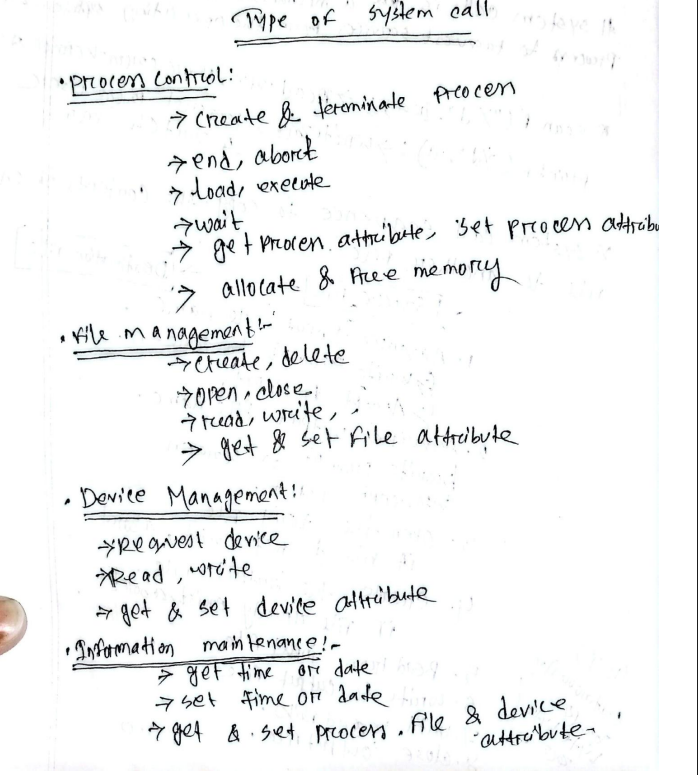 Type of system call
• Process Control:
→ Create & terminate process
→ end, abort
→ Load, execute
→ wait
→ get process attribute, set process attribu
→ allocate & free memory
• File management:-
→ create, delete
→ open, close
→ read, write,
→ get & set file attribute
• Device Management:
→ Request device
→ Read, write
→ get & set device attribute
• Information maintenance:-
→ get time or date
→ set time or date
→ get & set process, file & device
attribute